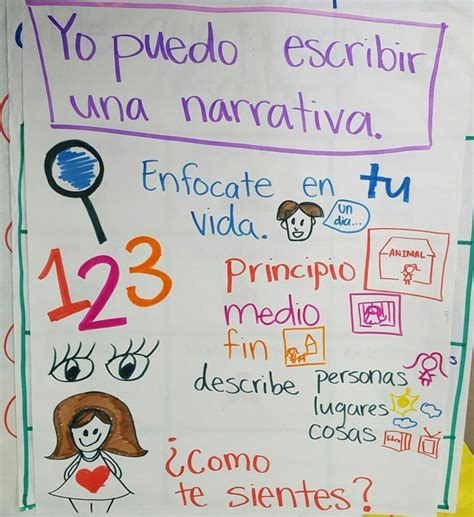 Yo puedo escribir
una narrativa.
Enfocate en tu
vida.
un
dia...
123
Principio
ANIMAL
medio
fin
describe personas
lugares
cosas
¿como
te sientes?